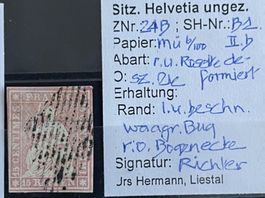 Sitz. Helvetia ungez.
ZNr.: 24B ; SH-Nr.: B1.
Papier: mü b/100 II.b
Abart: r.u. Rosette de-
O: sz. Rte formiert
Erhaltung:
Rand: l.u. beschn.
waagr. Bug
r.o. Bogenecke
Signatur: Richter
Jrs Hermann, Liestal
15 RAPPEN
15 CENTIMES